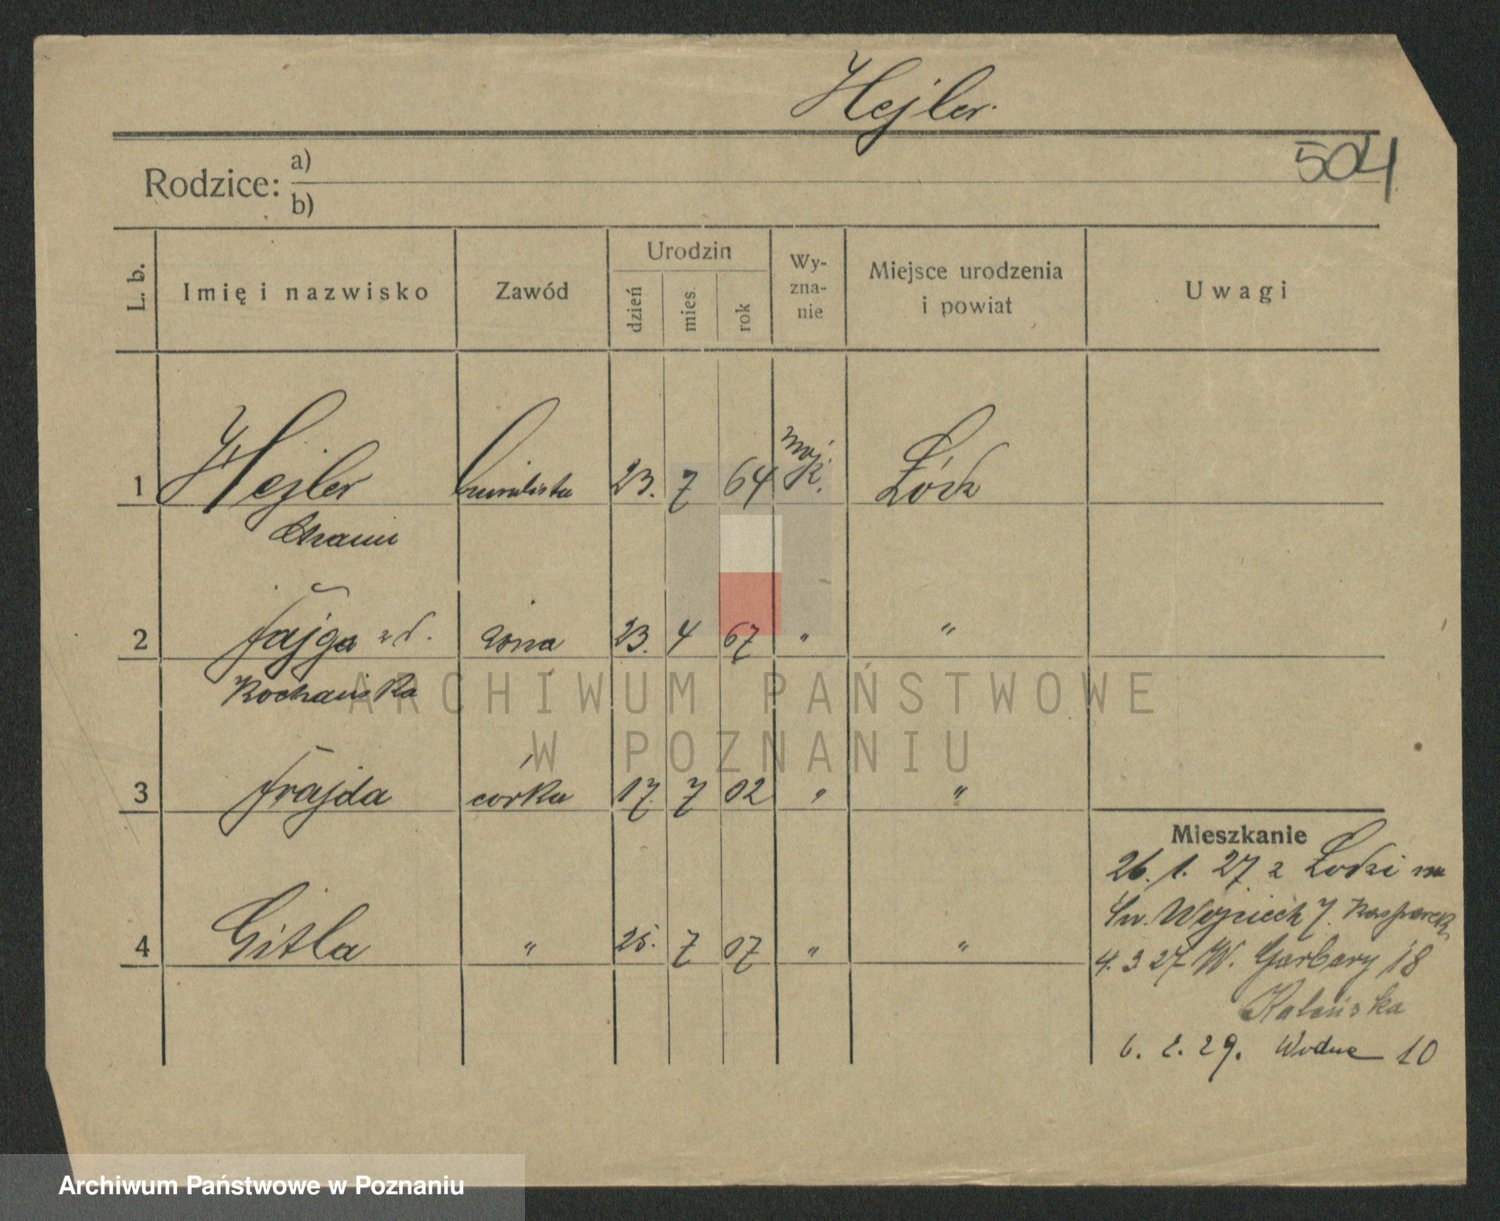 Hejler.
504
Rodzice: a)
b)
L. b. Imię i nazwisko Zawód Urodzin dzień mies. rok Wy-zna-nie Miejsce urodzenia i powiat Uwagi
1 Hejler 23. 7 64 mojż. Łódź
2 Fajga z d. żona 23. 4 67 " "
Kochańska
ARCHIWUM PAŃSTWOWE
W POZNANIU
3 Frajda córka 17. 7 02 " "
4 Gitla " 25. 7 07 " "
Mieszkanie
26. 1. 27 z Łodzi na
Św. Wojciech 7.
4. 3 27 W. Garbary 18
6. 2. 29. Wodna 10
Archiwum Państwowe w Poznaniu